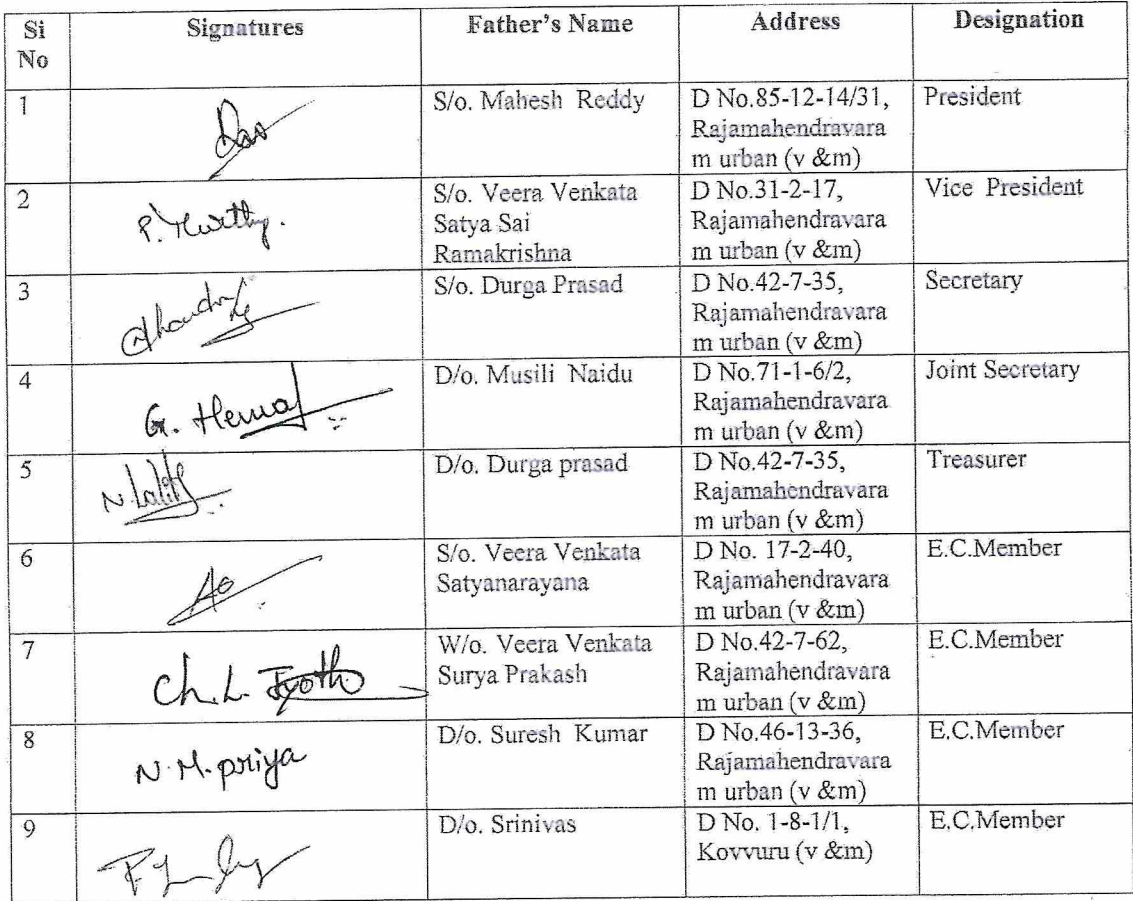 Si No
Signatures
Father's Name
Address
Designation
1
S/o. Mahesh Reddy
D No.85-12-14/31,
Rajamahendravara
m urban (v &m)
President
2
P. Murthy.
S/o. Veera Venkata
Satya Sai
Ramakrishna
D No.31-2-17,
Rajamahendravara
m urban (v &m)
Vice President
3
S/o. Durga Prasad
D No.42-7-35,
Rajamahendravara
m urban (v &m)
Secretary
4
G. Hema
D/o. Musili Naidu
D No.71-1-6/2,
Rajamahendravara
m urban (v &m)
Joint Secretary
5
N. Lalith
D/o. Durga prasad
D No.42-7-35,
Rajamahendravara
m urban (v &m)
Treasurer
6
S/o. Veera Venkata
Satyanarayana
D No. 17-2-40,
Rajamahendravara
m urban (v &m)
E.C.Member
7
Ch. L. Jyothi
W/o. Veera Venkata
Surya Prakash
D No.42-7-62,
Rajamahendravara
m urban (v &m)
E.C.Member
8
N. M. priya
D/o. Suresh Kumar
D No.46-13-36,
Rajamahendravara
m urban (v &m)
E.C.Member
9
D/o. Srinivas
D No. 1-8-1/1,
Kovvuru (v &m)
E.C.Member